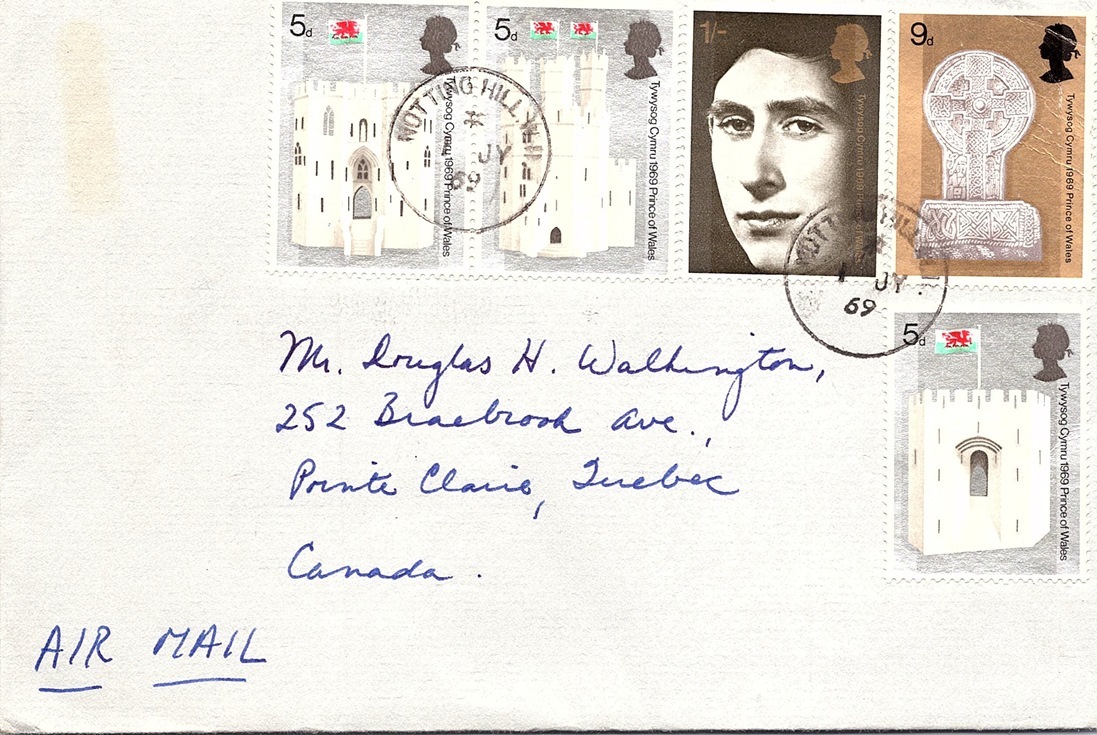 5d
Tywysog Cymru 1969 Prince of Wales
5d
Tywysog Cymru 1969 Prince of Wales
1/-
Tywysog Cymru 1969 Prince of Wales
9d
Tywysog Cymru 1969 Prince of Wales
NOTTING HILL
JY
69
NOTTING HILL
1 JY
69
5d
Tywysog Cymru 1969 Prince of Wales
Mr. Douglas H. Walkington,
252 Braebrook Ave.,
Pointe Claire, Quebec
Canada.
AIR MAIL